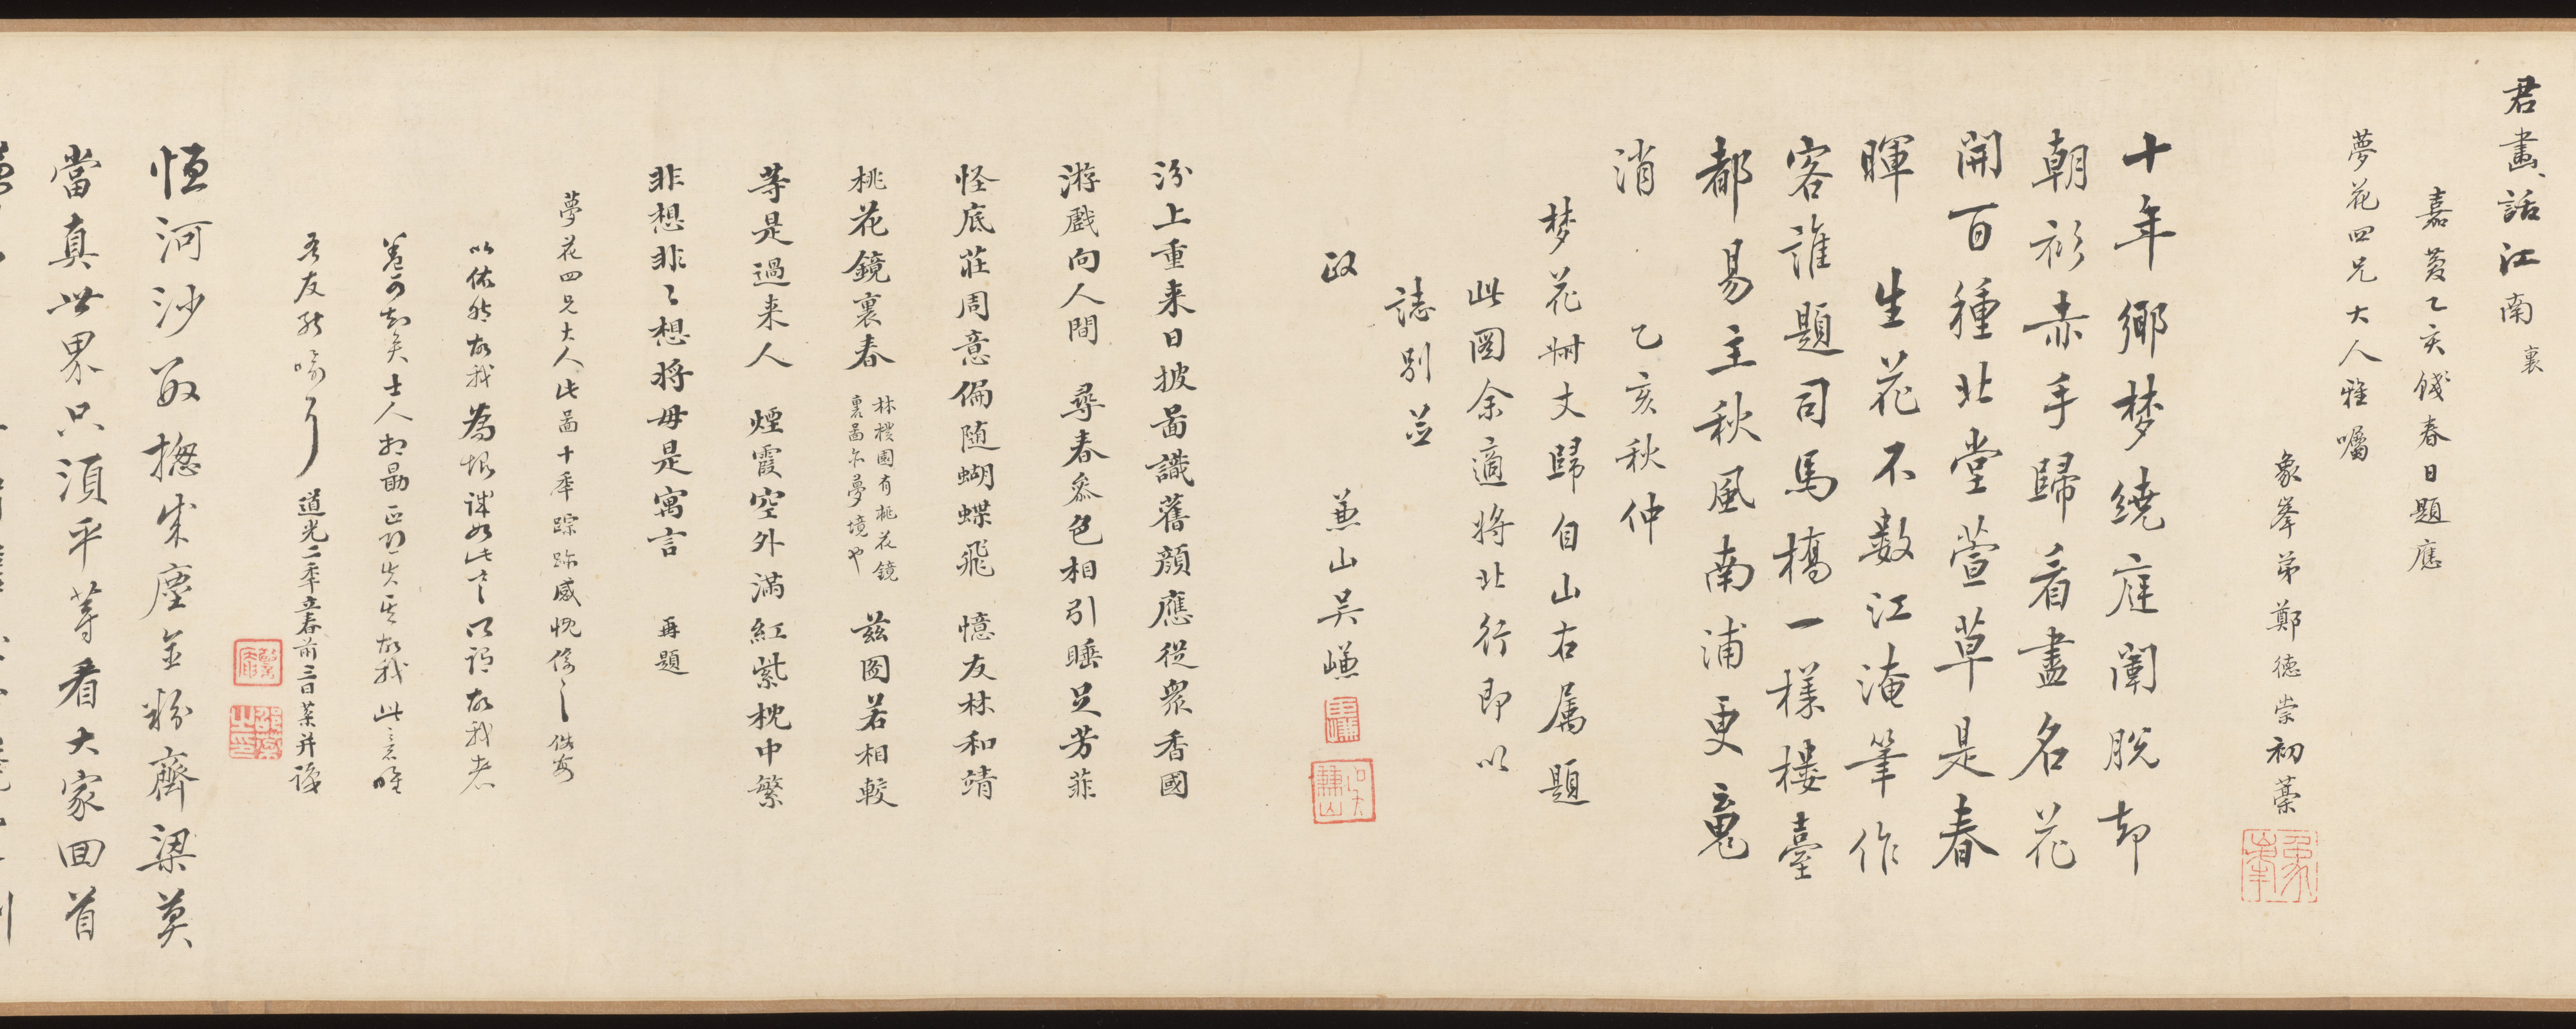 君畫話江南裏
嘉慶乙亥餞春日題應
夢花四兄大人雅囑
象峯弟鄭德崇初藁
十年鄉梦繞庭闈脫却
朝衫赤手歸看盡名花
開百種北堂萱草是春
暉 生花不数江淹筆作
客誰題司馬橋一樣樓臺
都易主秋風南浦更魂
消 乙亥秋仲
梦花卌丈歸自山右属題
此图余適将北行即以
誌别並
政 兼山吴嵰
汾上重来日披啚識舊顔應從衆香國
游戲向人間 尋春叅色相引睡足芳菲
怪底莊周意偏随蝴蝶飛 憶友林和靖
桃花鏡裏春
林樸園有桃花鏡
裏啚亦夢境也
兹图若相較
等是過来人 煙霞空外滿紅紫枕中繁
非想非〻想将毋是寓言 再題
夢花四兄大人此啚十年踪跡感慨係之
以依然故我為恨誰如此言以謂故我者
卷可知矣士人 故我此意唯
吾友能喻耳道光二年立春前三日 并識
恒河沙数揔成塵金粉齊梁莫
當真世界只須平等看大家回首